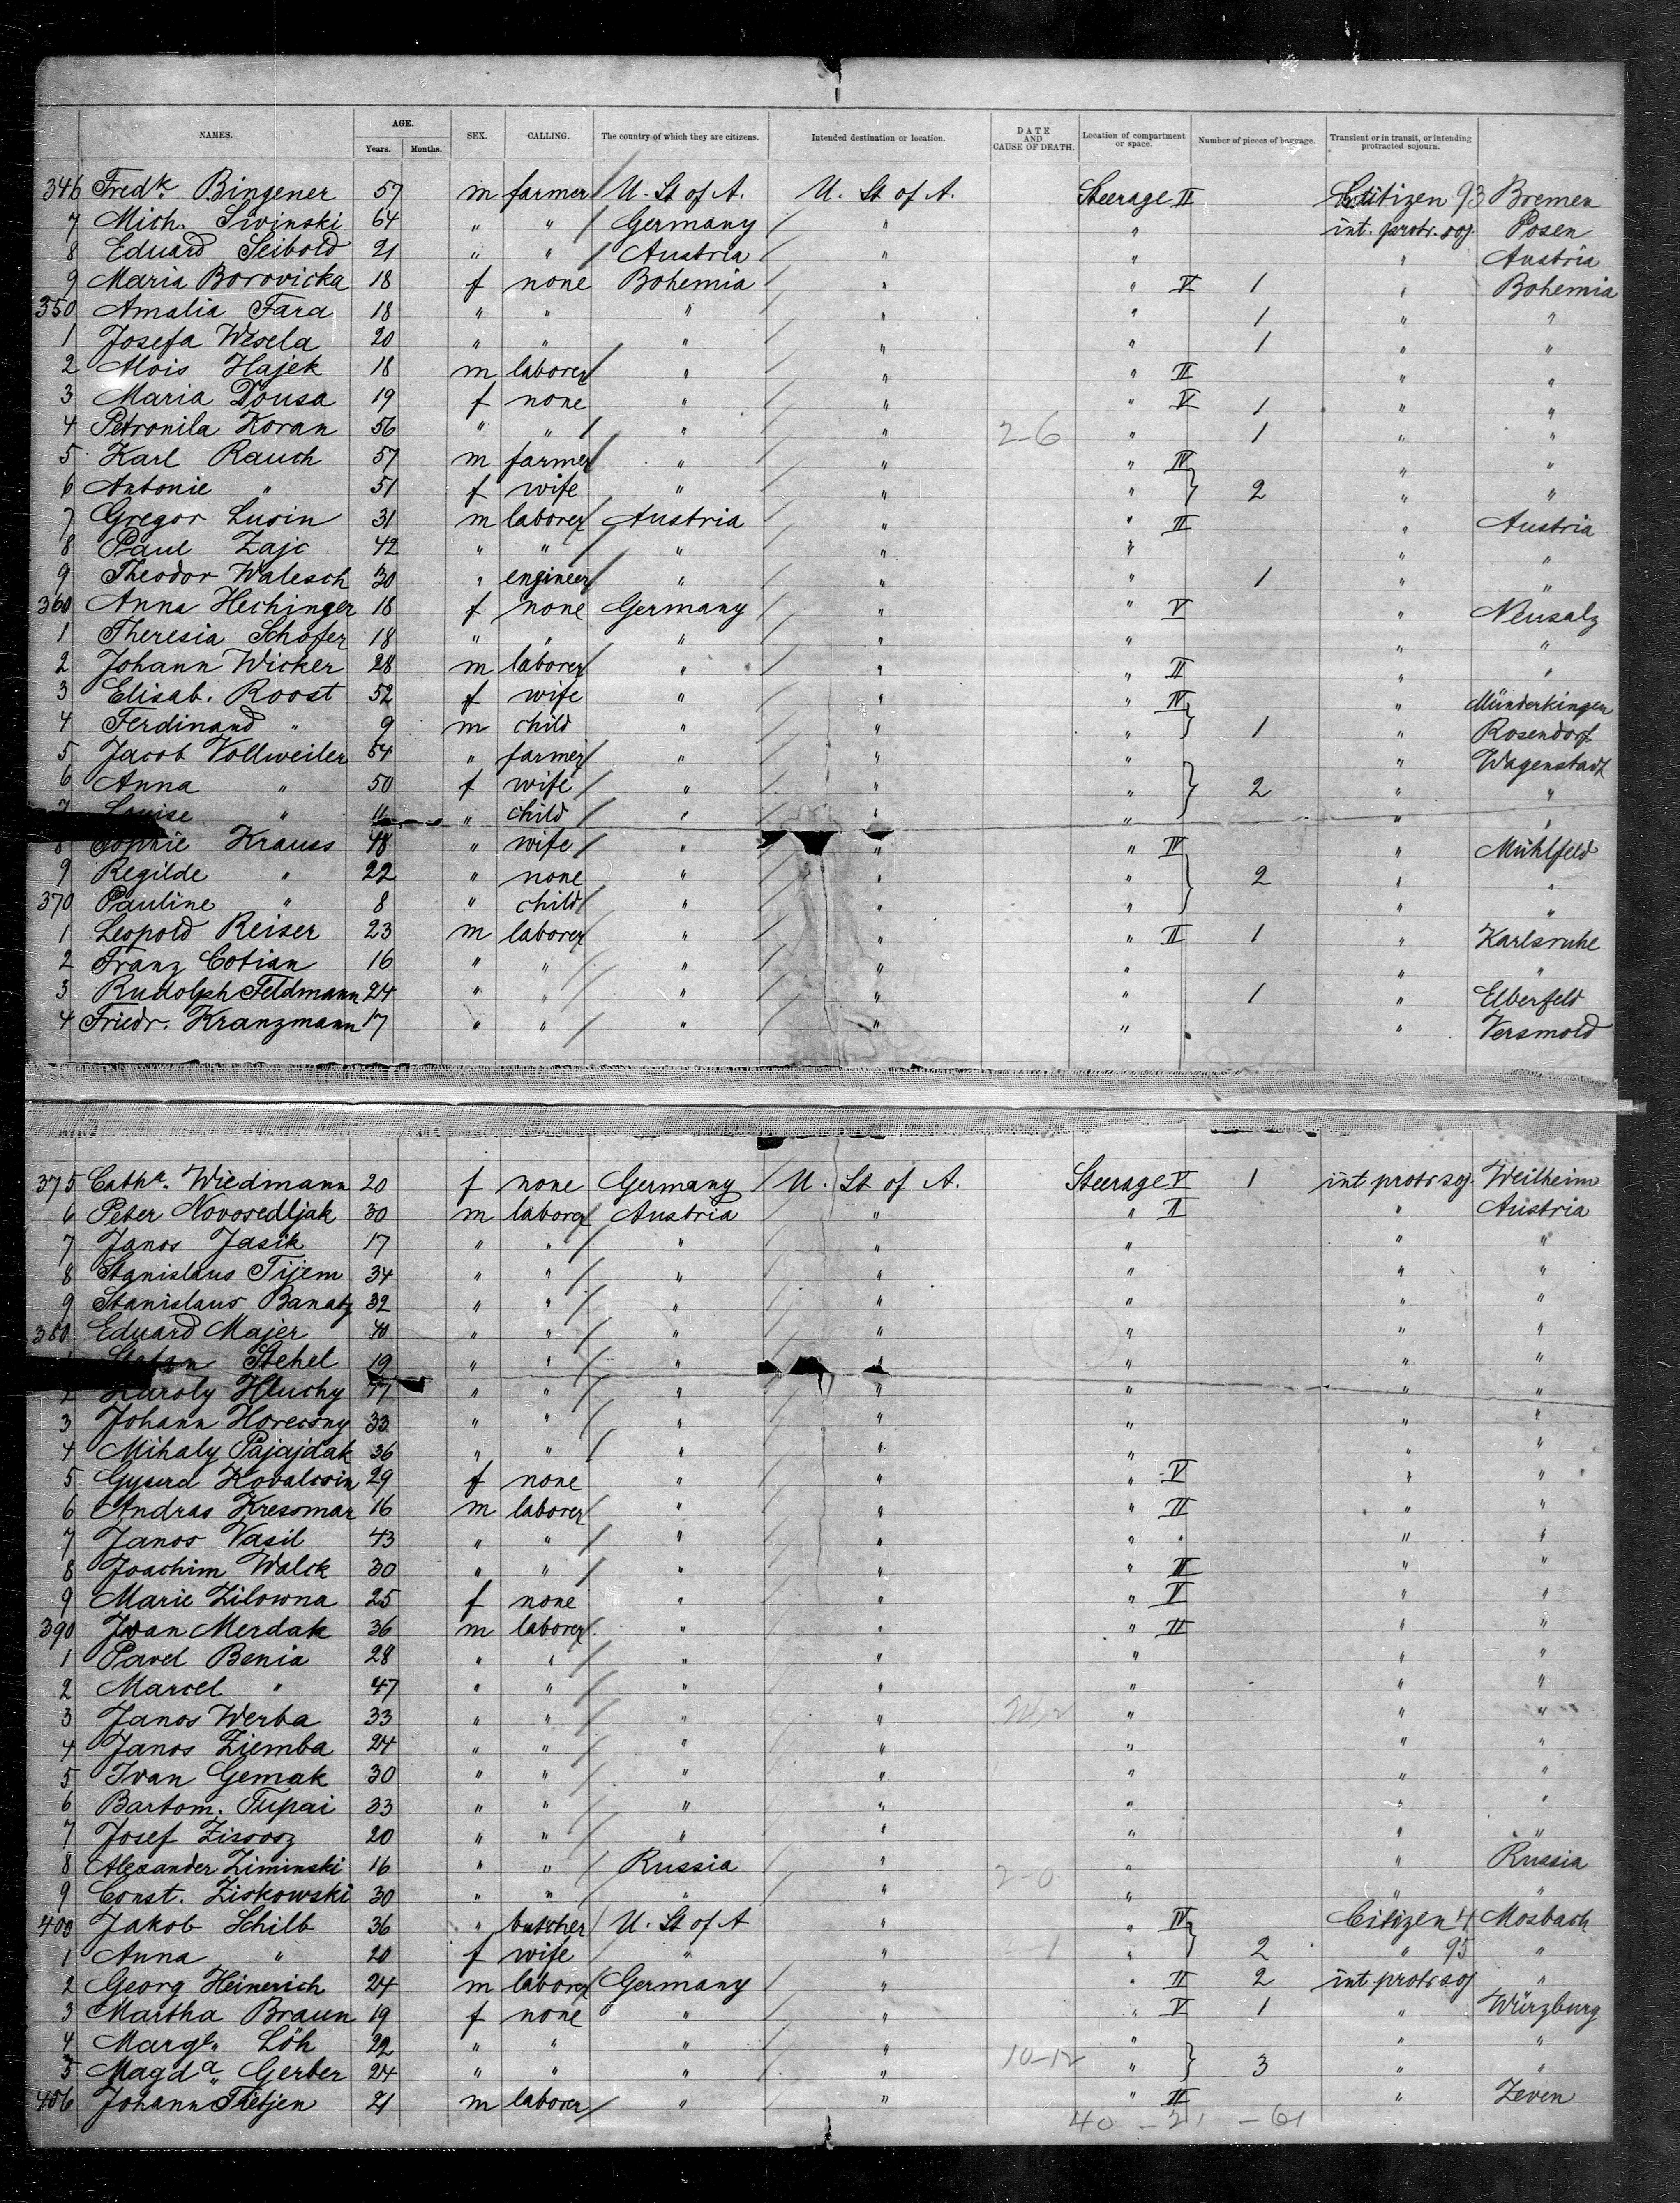 NAMES. AGE. Years. Months. SEX. CALLING. The country of which they are citizens. Intended destination or location. DATE AND CAUSE OF DEATH. Location of compartment or space. Number of pieces of baggage. Transient or in transit, or intending protracted sojourn.
346 Fredk. Bingener 57 m farmer U. St of A. U. St of A. Steerage II Citizen 93 Bremen
7 Mich. Siwinski 64 " " Germany " " int. protr. soj. Posen
8 Eduard Seibold 21 " " Austria " " " Austria
9 Maria Borovicka 18 f none Bohemia " " V 1 " Bohemia
350 Amalia Fara 18 " " " " " 1 " "
1 Josefa Wesela 20 " " " " " 1 " "
2 Alois Hajek 18 m laborer " " " II " "
3 Maria Dousa 19 f none " " " V 1 " "
4 Petronila Koran 56 " " " " 2-6 " 1 " "
5 Karl Rauch 57 m farmer " " " IV " "
6 Antonie " 51 f wife " " " 2 " "
7 Gregor Lusin 31 m laborer Austria " " II " Austria
8 Paul Zajc 42 " " " " " " "
9 Theodor Walesch 30 " engineer " " " 1 " "
360 Anna Hechinger 18 f none Germany " " V " Neusalz
1 Theresia Schofer 18 " " " " " " "
2 Johann Wicker 28 m laborer " " " II " "
3 Elisab. Roost 52 f wife " " " IV " Münderkingen
4 Ferdinand " 9 m child " " " 1 " Rosendorf
5 Jacob Vollweiler 54 " farmer " " " " Wagenstadt
6 Anna " 50 f wife " " " 2 " "
7 Louise " 11 " child " " " " "
8 Sophie Krauss 48 " wife " " " IV " Mühlfeld
9 Regilde " 22 " none " " " 2 " "
370 Pauline " 8 " child " " " " "
1 Leopold Reiser 23 m laborer " " " II 1 " Karlsruhe
2 Franz Cotian 16 " " " " " " "
3 Rudolph Feldmann 24 " " " " " 1 " Elberfeld
4 Friedr. Kranzmann 17 " " " " " " Versmold
375 Catha. Wiedmann 20 f none Germany U. St of A. Steerage V 1 int protr soj. Weilheim
6 Peter Novosedljak 30 m laborer Austria " " II " Austria
7 Janos Jasik 17 " " " " " " "
8 Stanislaus Tijem 34 " " " " " " "
9 Stanislaus Banatz 32 " " " " " " "
380 Eduard Majer 40 " " " " " " "
Stefan Stehel 19 " " " " " " "
2 Karoly Hluchy 17 " " " " " " "
3 Johann Horecsny 33 " " " " " " "
4 Mihaly Pajajdak 36 " " " " " " "
5 Kovalcsin 29 f none " " " V " "
6 Andras Kressmar 16 m laborer " " " II " "
7 Janos Vasil 43 " " " " " " " "
8 Joachim Walck 30 " " " " " II " "
9 Marie Zilowna 25 f none " " " V " "
390 Iwan Merdak 36 m laborer " " " II " "
1 Pavel Benia 28 " " " " " " "
2 Marcel " 47 " " " " " " "
3 Janos Werba 33 " " " " " " "
4 Janos Ziemba 24 " " " " " " "
5 Ivan Gemak 30 " " " " " " "
6 Bartom. Tupai 33 " " " " " " "
7 Josef 20 " " " " " " "
8 Alexander Ziminski 16 " " Russia " 2-0 " " Russia
9 Const. Ziskowski 30 " " " " " " "
400 Jakob Schilb 36 " butcher U. St of A " " IV Citizen 4 Mosbach
1 Anna " 20 f wife " " " 2 " 95 "
2 Georg Heinerich 24 m laborer Germany " " II 2 int protr soj "
3 Martha Braun 19 f none " " " V 1 " Würzburg
4 Margt. Löh 22 " " " " " " "
5 Magda. Gerber 24 " " " " 10-12 " 3 " "
406 Johann Tietjen 21 m laborer " " " II " Zeven
40 - 21 - 61